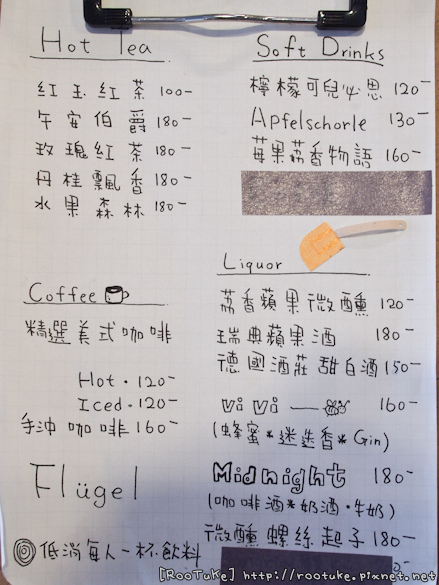 Hot Tea
紅玉紅茶 100-
午安伯爵 180-
玫瑰紅茶 180-
丹桂飄香 180-
水果森林 180-
Soft Drinks
檸檬可兒必思 120-
Apfelschorle 130-
莓果荔香物語 160-
Coffee
精選美式咖啡
Hot・120-
Iced・120-
手沖咖啡 160-
Liquor
荔香蘋果微醺 120-
瑞典蘋果酒 180-
德國酒莊甜白酒 150-
ViVi 160-
(蜂蜜*迷迭香*Gin)
Midnight 180-
(咖啡酒*奶酒・牛奶)
微醺螺絲起子 180-
Flügel
低消每人一杯飲料
[RooTuKe] http://rootuke.pixnet.net